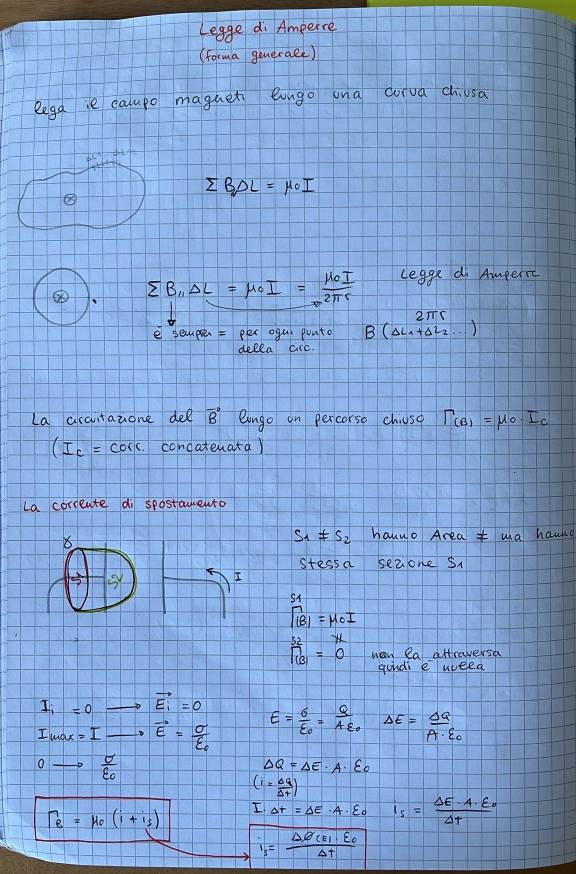 Legge di Amperre
(forma generale)
lega il campo magneti lungo una curva chiusa
ΔL₁ ΔL₂
Σ B∥ΔL = μ₀I
Σ B∥ ΔL = μ₀I = μ₀I / 2πr Legge di Amperre
è sempre = per ogni punto
della circ.
2πr
B (ΔL₁+ΔL₂...)
La circuitazione del B⃗ lungo un percorso chiuso Γ(B) = μ₀ · Ic
(Ic = corr. concatenata)
La corrente di spostamento
S1 ≠ S2 hanno Area ≠ ma hanno
stessa sezione S1
γ S1 S2 I
S1
Γ(B) = μ₀I
S2
Γ(B) = 0 non la attraversa
quindi è nulla
Ii = 0 → E⃗i = 0
Imax = I → E⃗ = σ/ε₀
0 → σ/ε₀
E = σ/ε₀ = Q/Aε₀ ΔE = ΔQ/A·ε₀
ΔQ = ΔE · A · ε₀
(i = ΔQ/Δt)
I · Δt = ΔE · A · ε₀ is = ΔE · A · ε₀ / Δt
ΓB = μ₀ (i + is)
is = ΔΦ(E) · ε₀ / Δt